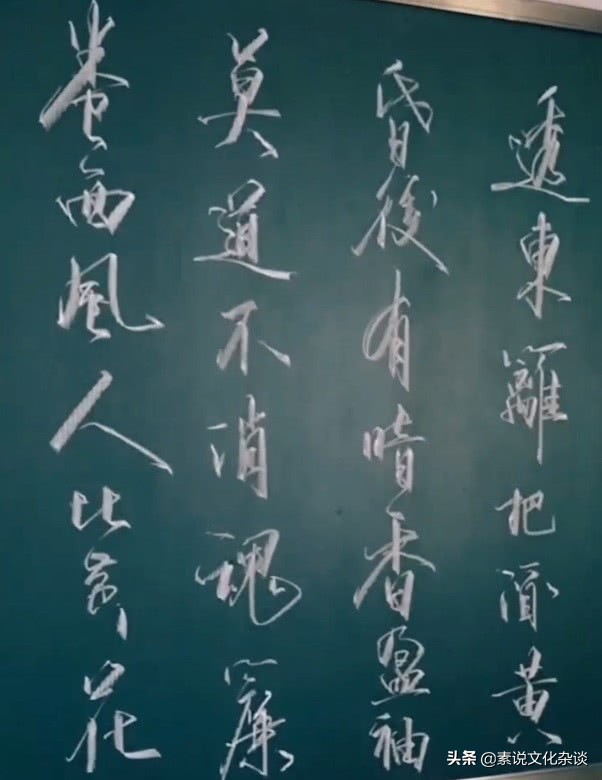 透東籬把酒黃
昏後有暗香盈袖
莫道不消魂簾
卷西風人比黃花
头条 @素说文化杂谈